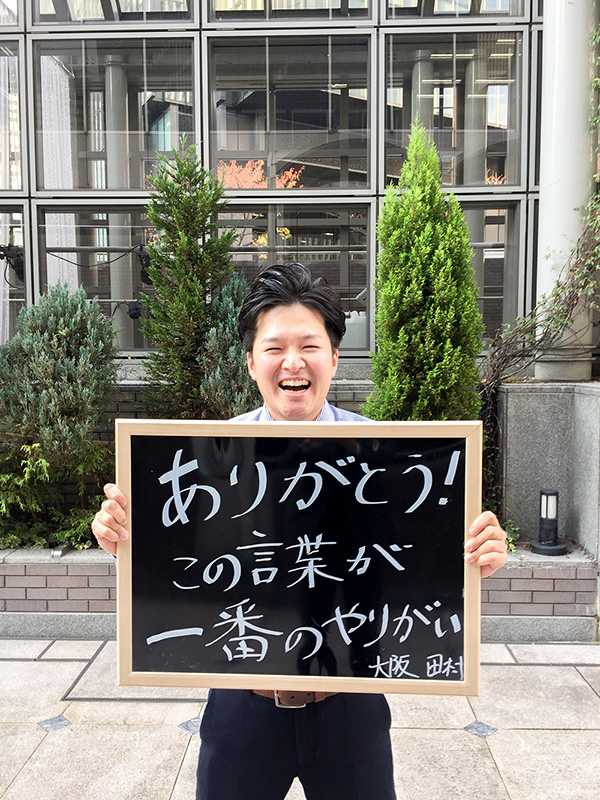 ありがとう!
この言葉が
一番のやりがい
大阪 田村